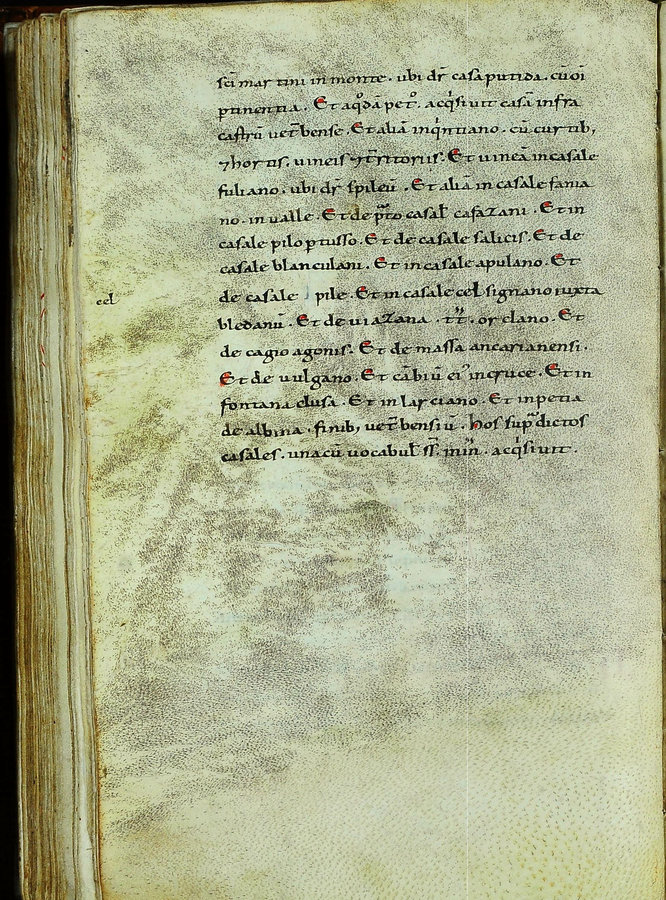 sc̄i martini in monte. ubi dr̄ casaputida. cū oī
ptinentia. Et aq̊dā pet̊. acq̇siuit casā infra
castrū uet̄bense. Et aliā inq̇ntiano. cū curtib;
⁊hortis. uineis ⁊t̄ritoriis. Et uineā incasale
fuliano. ubi dr̄ spileū. Et aliā in casale fania
no. in ualle. Et de p̄to casaƚ casazani. Et in
casale pilo ptusso. Et de casale salicis. Et de
casale blanculani. Et incasale apulano. Et
de casale pile. Et in casale cel signano iuxta
cel
bledanū. Et de uiazana. tt̄. orclano. Et
de cagio agonis. Et de massa ancarianensi.
Et de uulgano. Et cābiū ei' incruce. Et in
fontana clusa. Et in larciano. Et inpetia
de albina. finib; uet̄bensiū. hos sup̄dictos
casales. unacū uocabuƚ ss̄. in in̄. acq̇siuit.